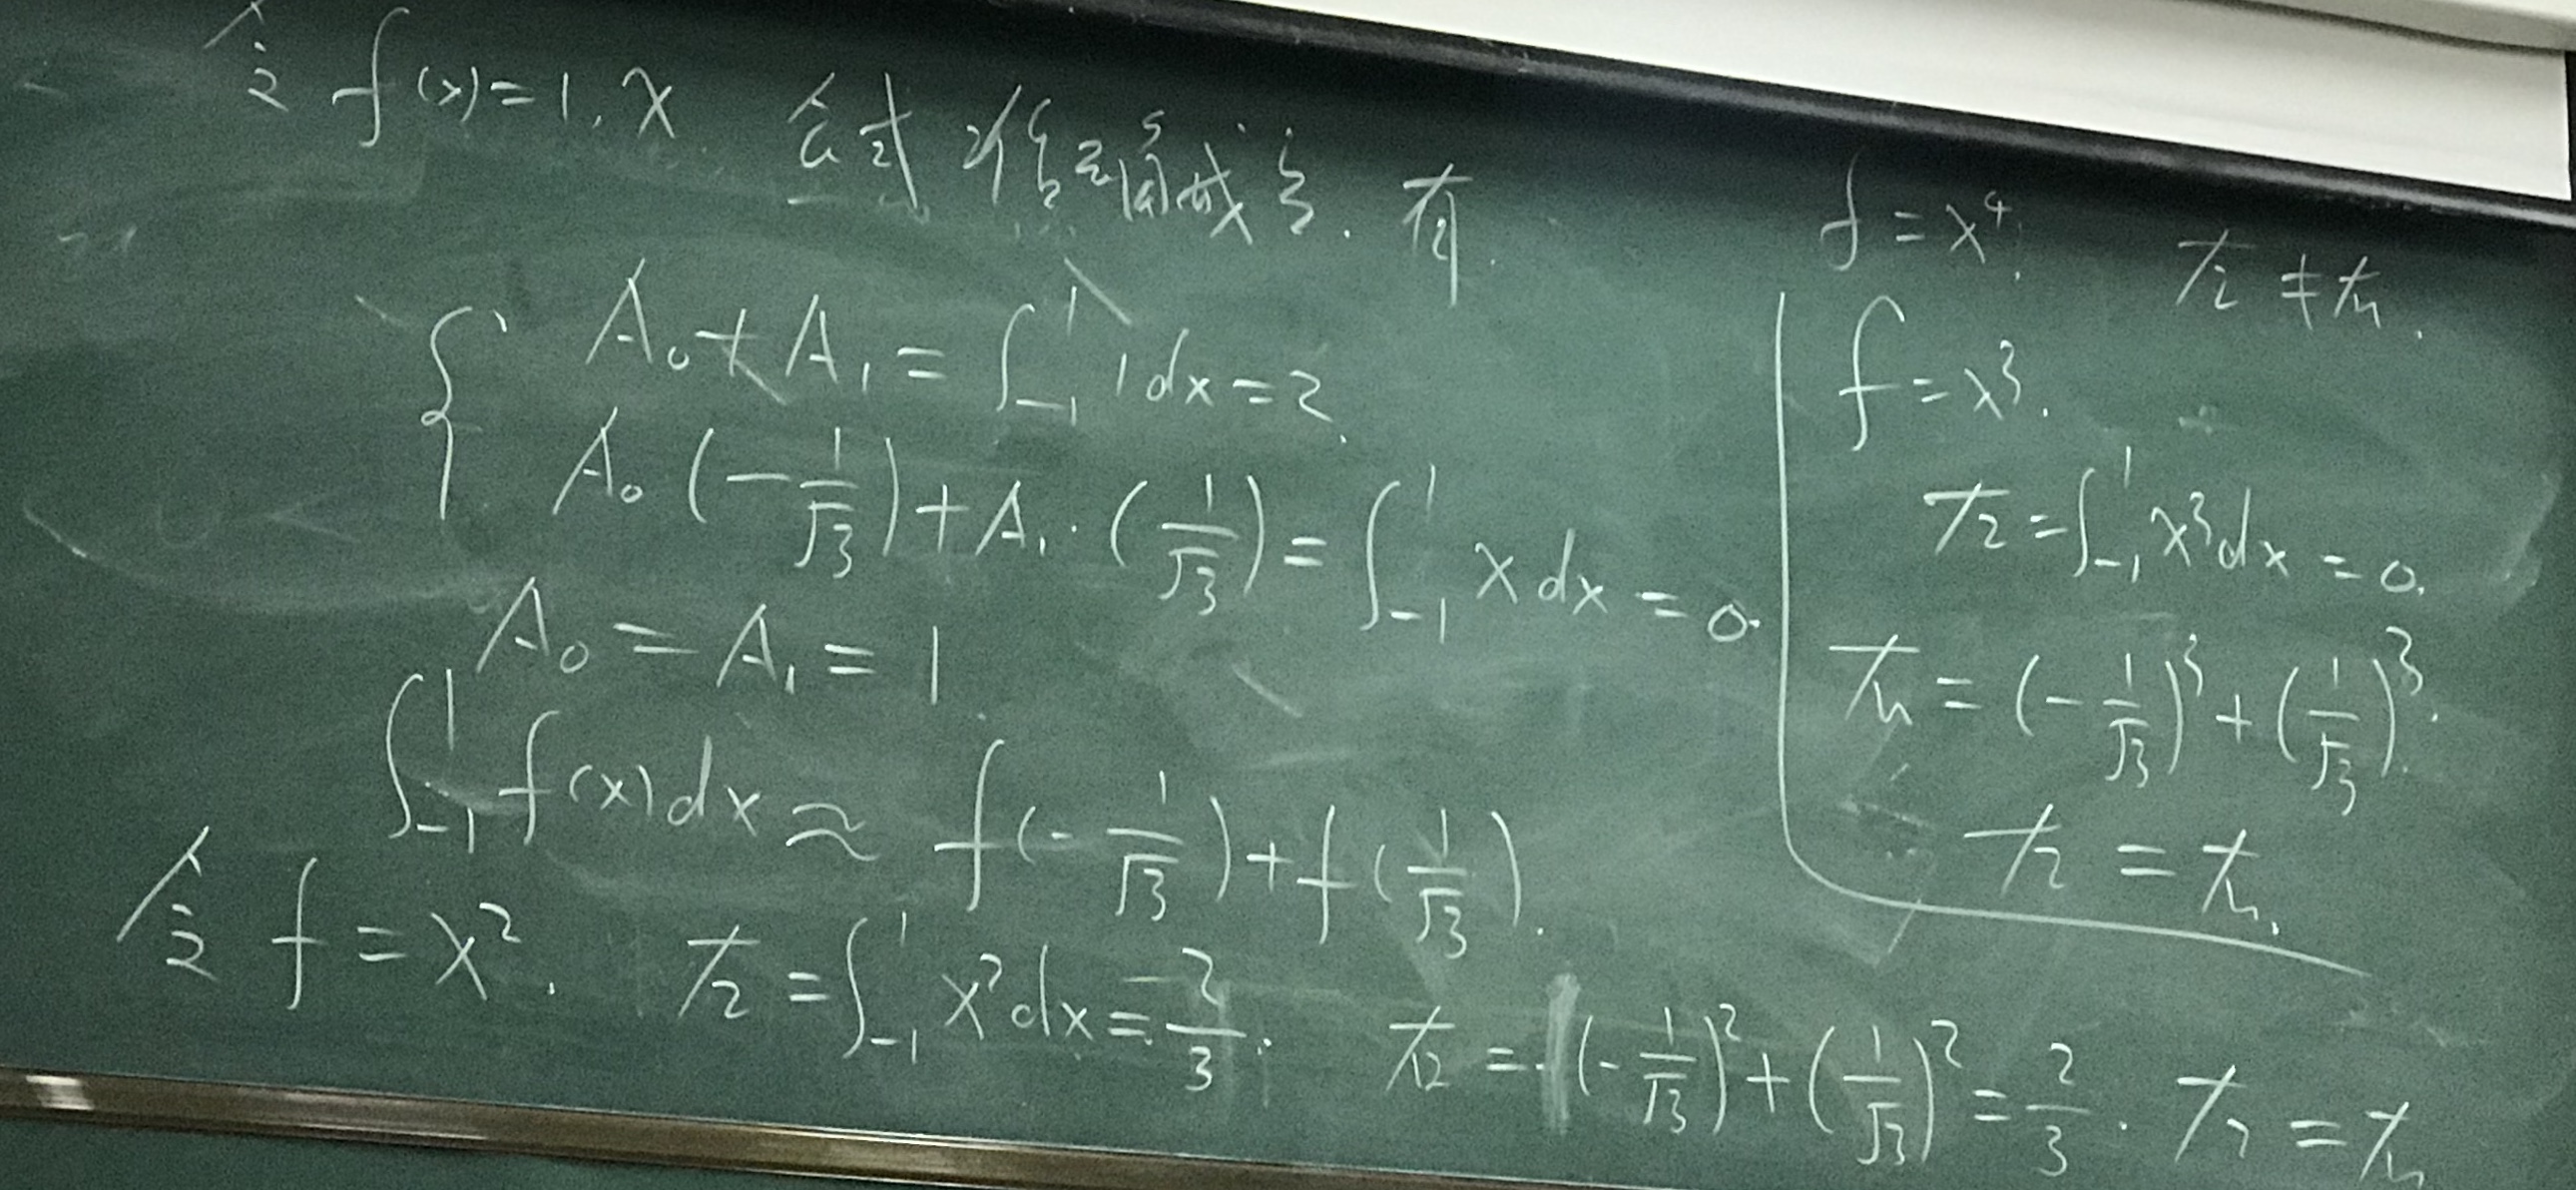 令 f(x)=1, x 公式准确成立. 有
{ A₀+A₁=∫₋₁¹ 1dx=2.
A₀·(-1/√3)+A₁·(1/√3)=∫₋₁¹ xdx=0.
A₀=A₁=1.
∫₋₁¹ f(x)dx≈f(-1/√3)+f(1/√3).
令 f=x². 左=∫₋₁¹ x²dx=2/3. 右=(-1/√3)²+(1/√3)²=2/3. 左=右
f=x⁴. 左≠右.
f=x³.
左=∫₋₁¹ x³dx=0.
右=(-1/√3)³+(1/√3)³.
左=右.